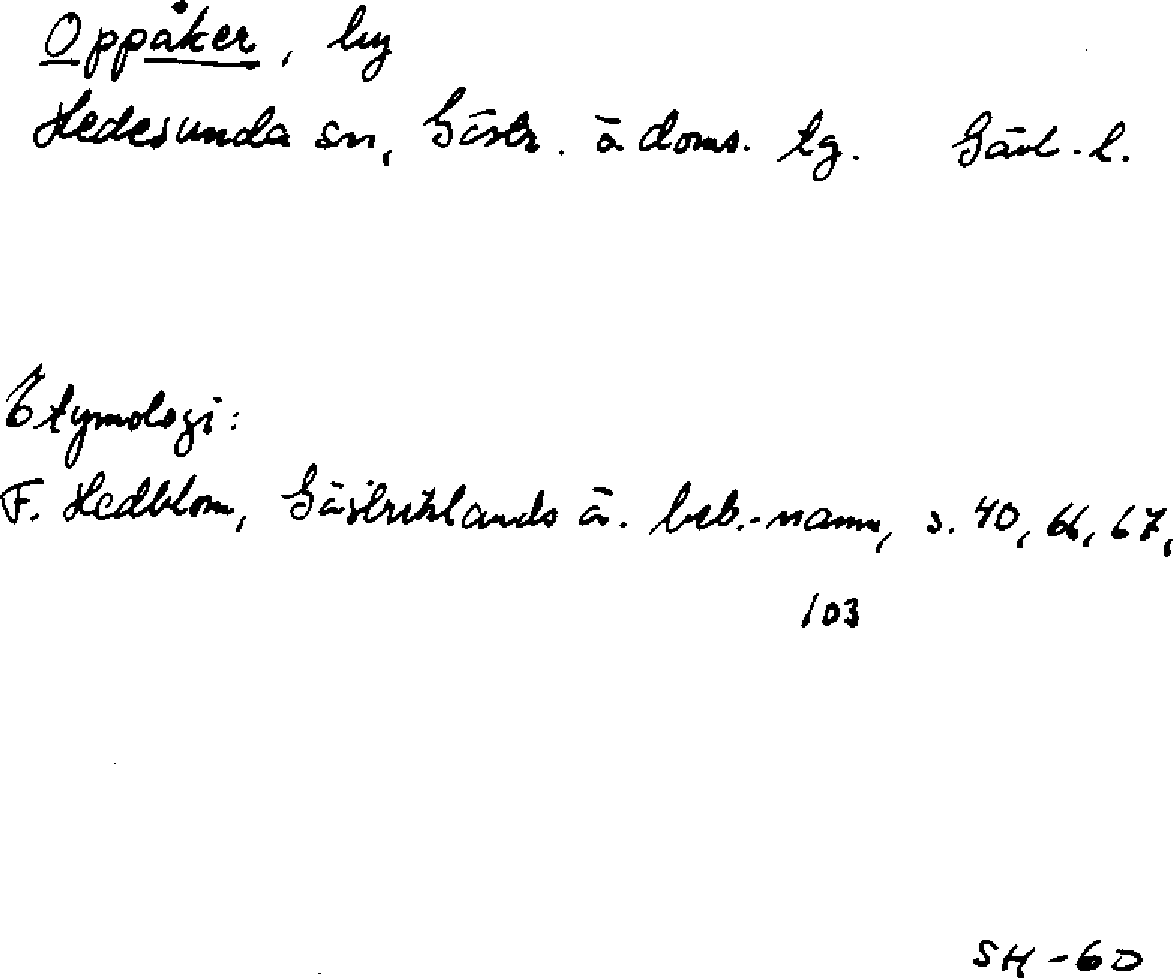 Oppåker, by
Hedesunda sn, Gästr. ö. doms. tg. Gävl. l.
Etymologi:
F. Hedblom, Gästriklands ä. beb.-namn, s. 40, 66, 67,
103
SH-60